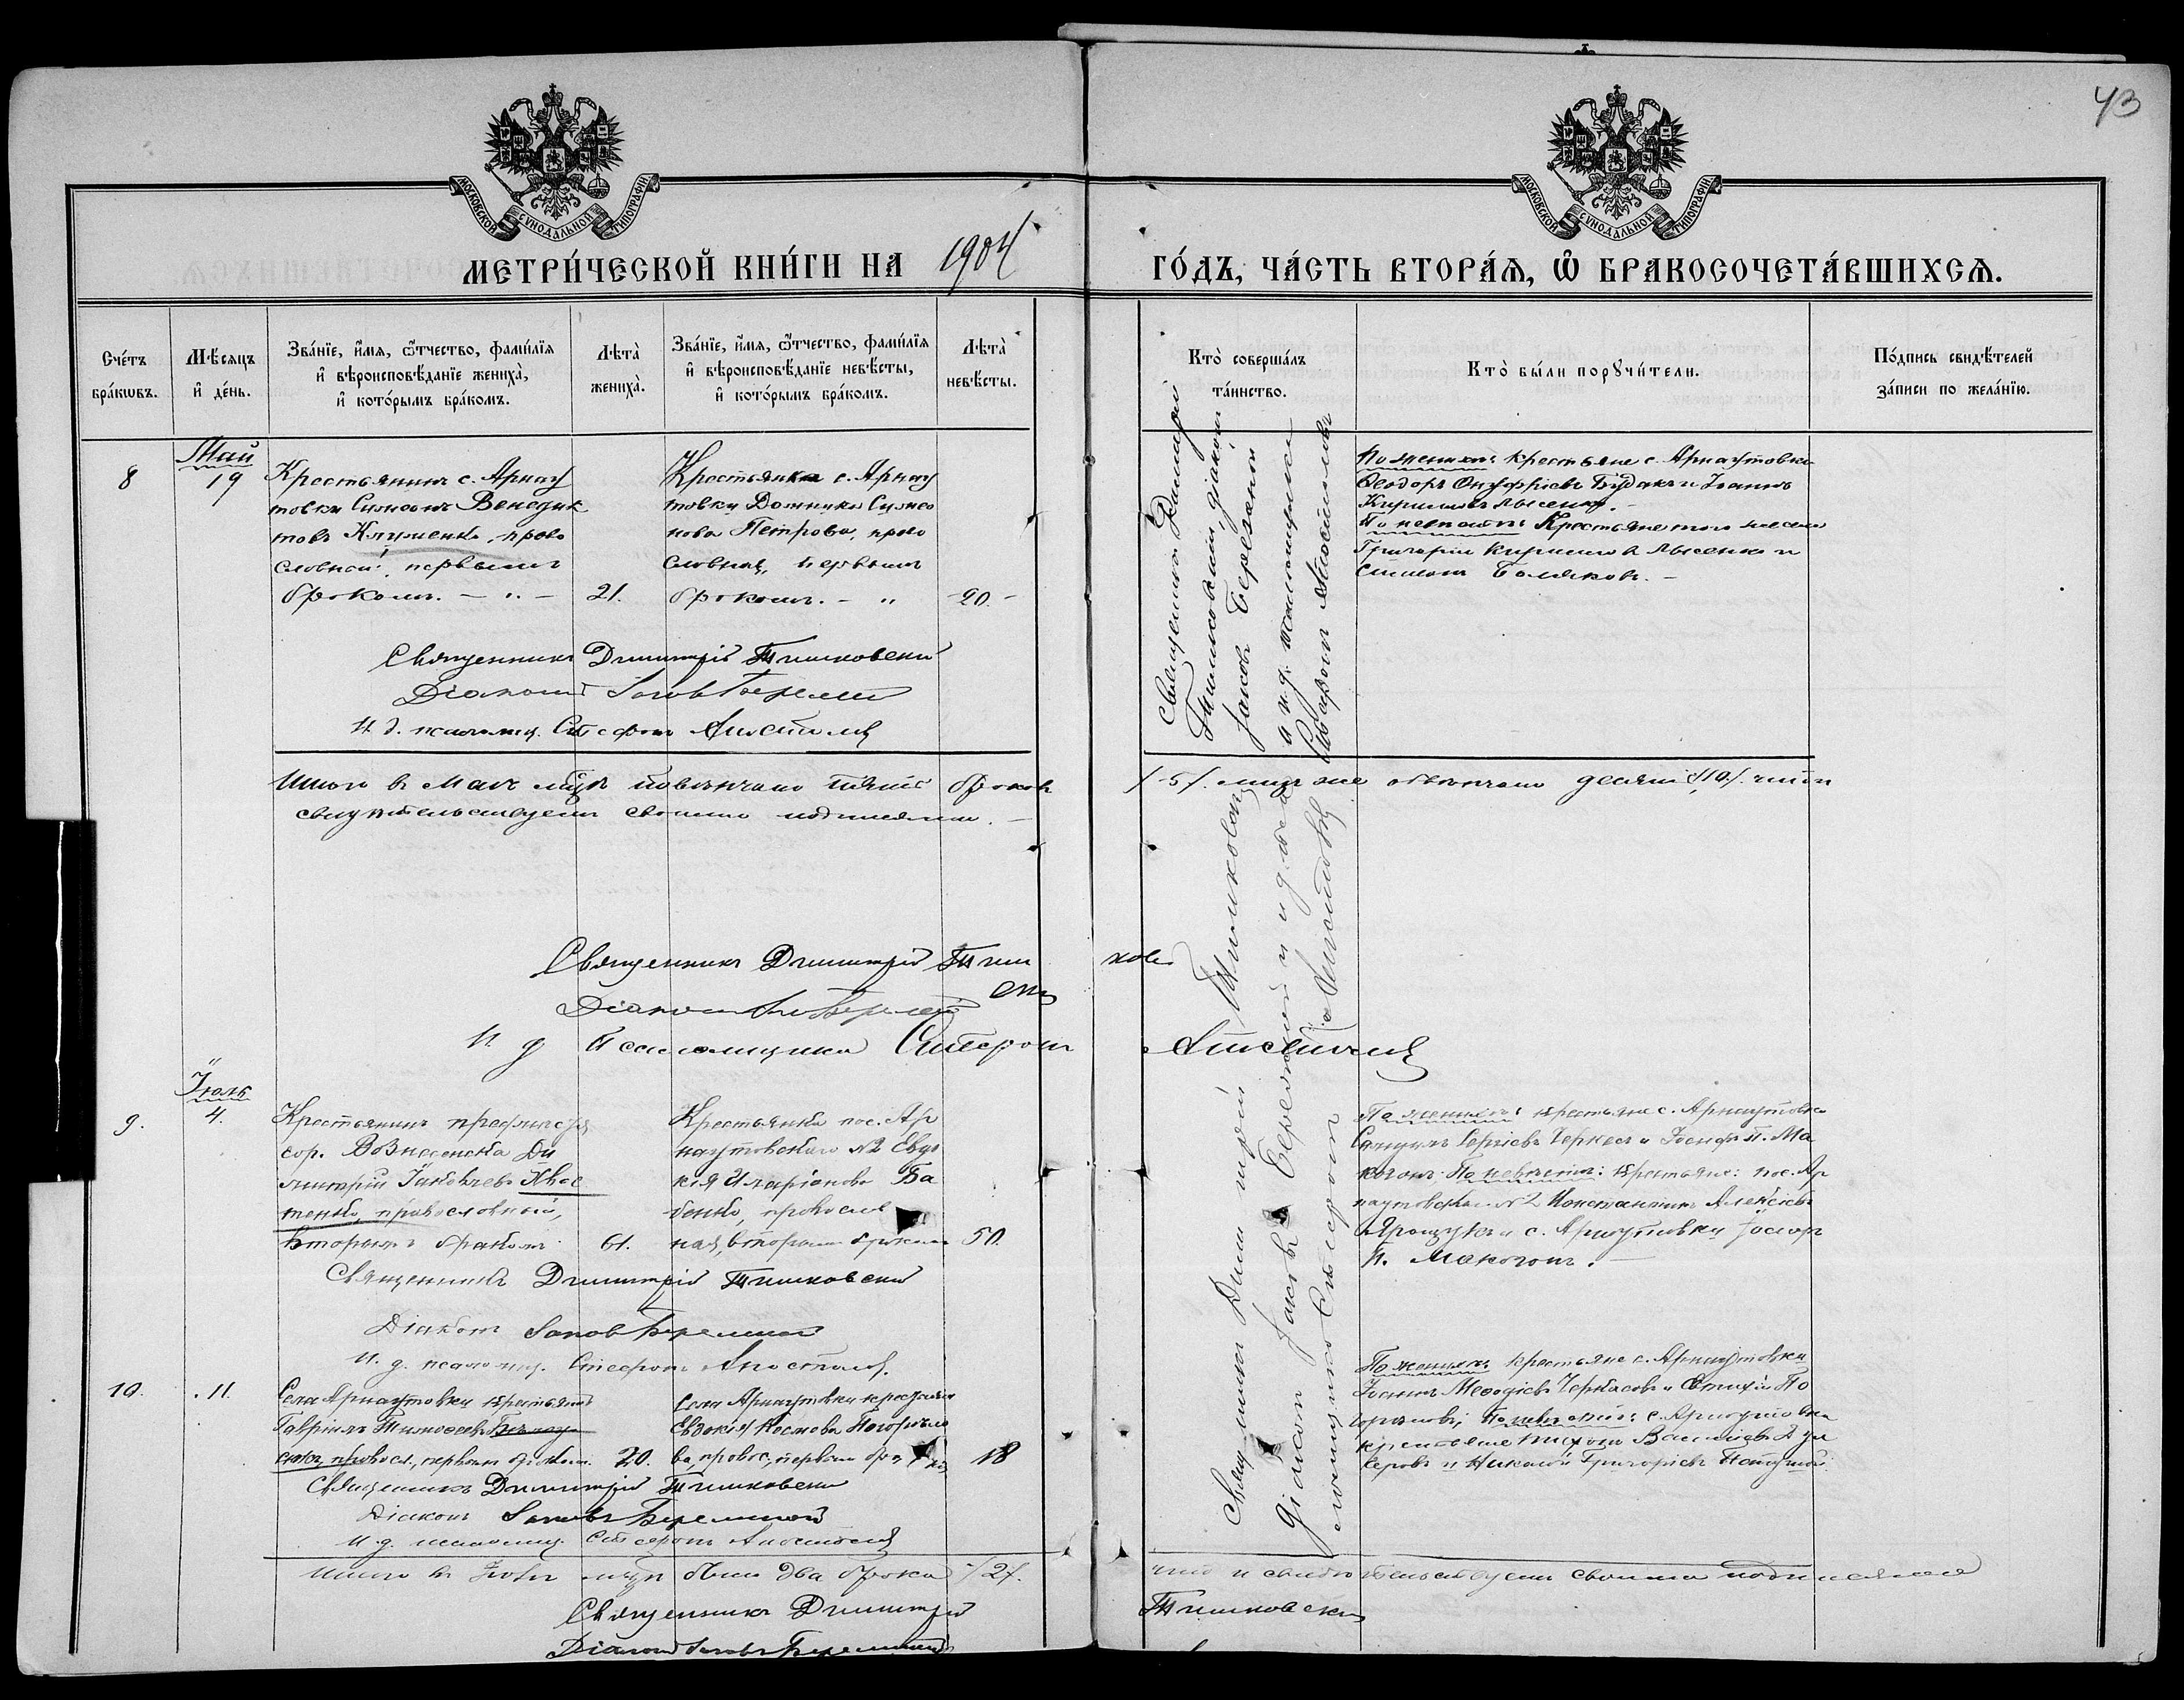 43
МОСКОВСКОЙ СѴНОДАЛЬНОЙ ТИПОГРАФІИ
МОСКОВСКОЙ СѴНОДАЛЬНОЙ ТИПОГРАФІИ
МЕТРИ́ЧЕСКОЙ КНИ́ГИ НА 1904 ГО́ДЪ, ЧА́СТЬ ВТОРА́Я, Ѡ БРАКОСОЧЕТА́ВШИХСЯ.
Сче́тъ бра́кѡвъ.
Мѣ́сяцъ и҆ де́нь.
Зва́нїе, и҆́мя, ѻ҆́тчество, фами́лїя
и҆ вѣроисповѣ́данїе жениха̀,
и҆ кото́рымъ бра́комъ.
Лѣта̀ жениха̀.
Зва́нїе, и҆́мя, ѻ҆́тчество, фами́лїя
и҆ вѣроисповѣ́данїе невѣ́сты,
и҆ кото́рымъ бра́комъ.
Лѣта̀ невѣ́сты.
Кто̀ соверша́лъ та́инство.
Кто̀ бы́ли порꙋчи́тели.
По́дпись свидѣ́телей за́писи по жела́нїю.
8
Май
19
Крестьянинъ с. Арнау
товки Симеонъ Венедик
товъ Клименко, право
славный, первымъ
бракомъ. – „ –
21.
Крестьянка с. Арнау
товки Домника Симео
нова Петрова, право
славная, первымъ
бракомъ. – „
20. –
Священникъ Димитрій Тимковскій
Діаконъ Іаковъ Бережной
и. д. псаломщика Стефанъ Апостоловъ
По женихѣ: крестьяне с. Арнаутовки
Ѳеодоръ Онуфріевъ Будакъ и Іоаннъ
Кирилловъ Лысенко. –
По невѣстѣ: Крестьяне того же села
Григорій Кирилловъ Лысенко и
Симеонъ –
Священникъ Димитрій Тимковскій
Діаконъ Іаковъ Бережной
И. д. псаломщ. Стефанъ Апостоловъ
Итого въ Маѣ м-цѣ повѣнчано пять браковъ /5/. лицъ же обвѣнчано десять /10/. чтó и
свидѣтельствуемъ своими подписями. –
Священникъ Димитрій Тимковскій
Діаконъ Іаковъ Бережной
И д Псаломщика Стефанъ Апостоловъ
Іюль
9.
4.
Крестьянинъ
гор. Вознесенска Ди
митрій Іаковлевъ Квас
тенко, православный,
вторымъ бракомъ
61.
Крестьянка пос. Ар
наутовскаго №2 Евдо
кія Иларіонова Ба
бенко, православ
ная, вторымъ бракомъ
50.
Священникъ Димитрій Тимковскій
Діаконъ Іаковъ Бережной
И. д. псаломщ. Стефанъ Апостоловъ.
По женихѣ: крестьяне с. Арнаутовки
Самуилъ Сергіевъ Черкесъ и Іосифъ П. Ма
когонъ. По невѣстѣ: крестьяне: пос. Ар
наутовскаго №2 Константинъ Алексѣевъ
Ярощукъ и с. Арнаутовки Іосифъ
П. Макогонъ. –
Священникъ Димитрій Тимковскій
Діаконъ Іаковъ Бережной и и. д. пса
ломщика Стефанъ Апостоловъ
10.
11.
Села Арнаутовки крестьянинъ
Гавріилъ Тимоѳеевъ
правосл., первымъ бракомъ.
20.
Села Арнаутовки крестьянка
Евдокія Космова Погорѣло
ва, правос., первымъ бра
18
Священникъ Димитрій Тимковскій
Діаконъ Іаковъ Бережной
И. д. псаломщ. Стефанъ Апостоловъ
По женихѣ: крестьяне с. Арнаутовки
Іоаннъ Меѳодіевъ Черкасовъ и По
горѣловъ; По невѣстѣ: с. Арнаутовки
крестьяне Василіевъ
и Николай Григоріевъ
Итого въ Іюлѣ м-цѣ было два брака /2/. что и свидѣтельствуемъ своими подписями
Священникъ Димитрій Тимковскій
Діаконъ Іаковъ Бережной